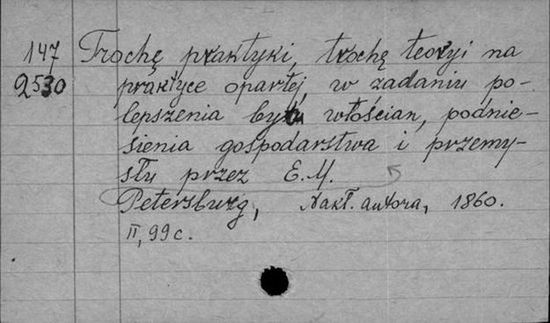 147 Trochę praktyki, trochę teoryi na
2530 praktyce opartej, w zadaniu po-
lepszenia bytu włościan, podnie-
sienia gospodarstwa i przemy-
słu przez E.M.
Petersburg, Nakł. autora, 1860.
II, 99 c.